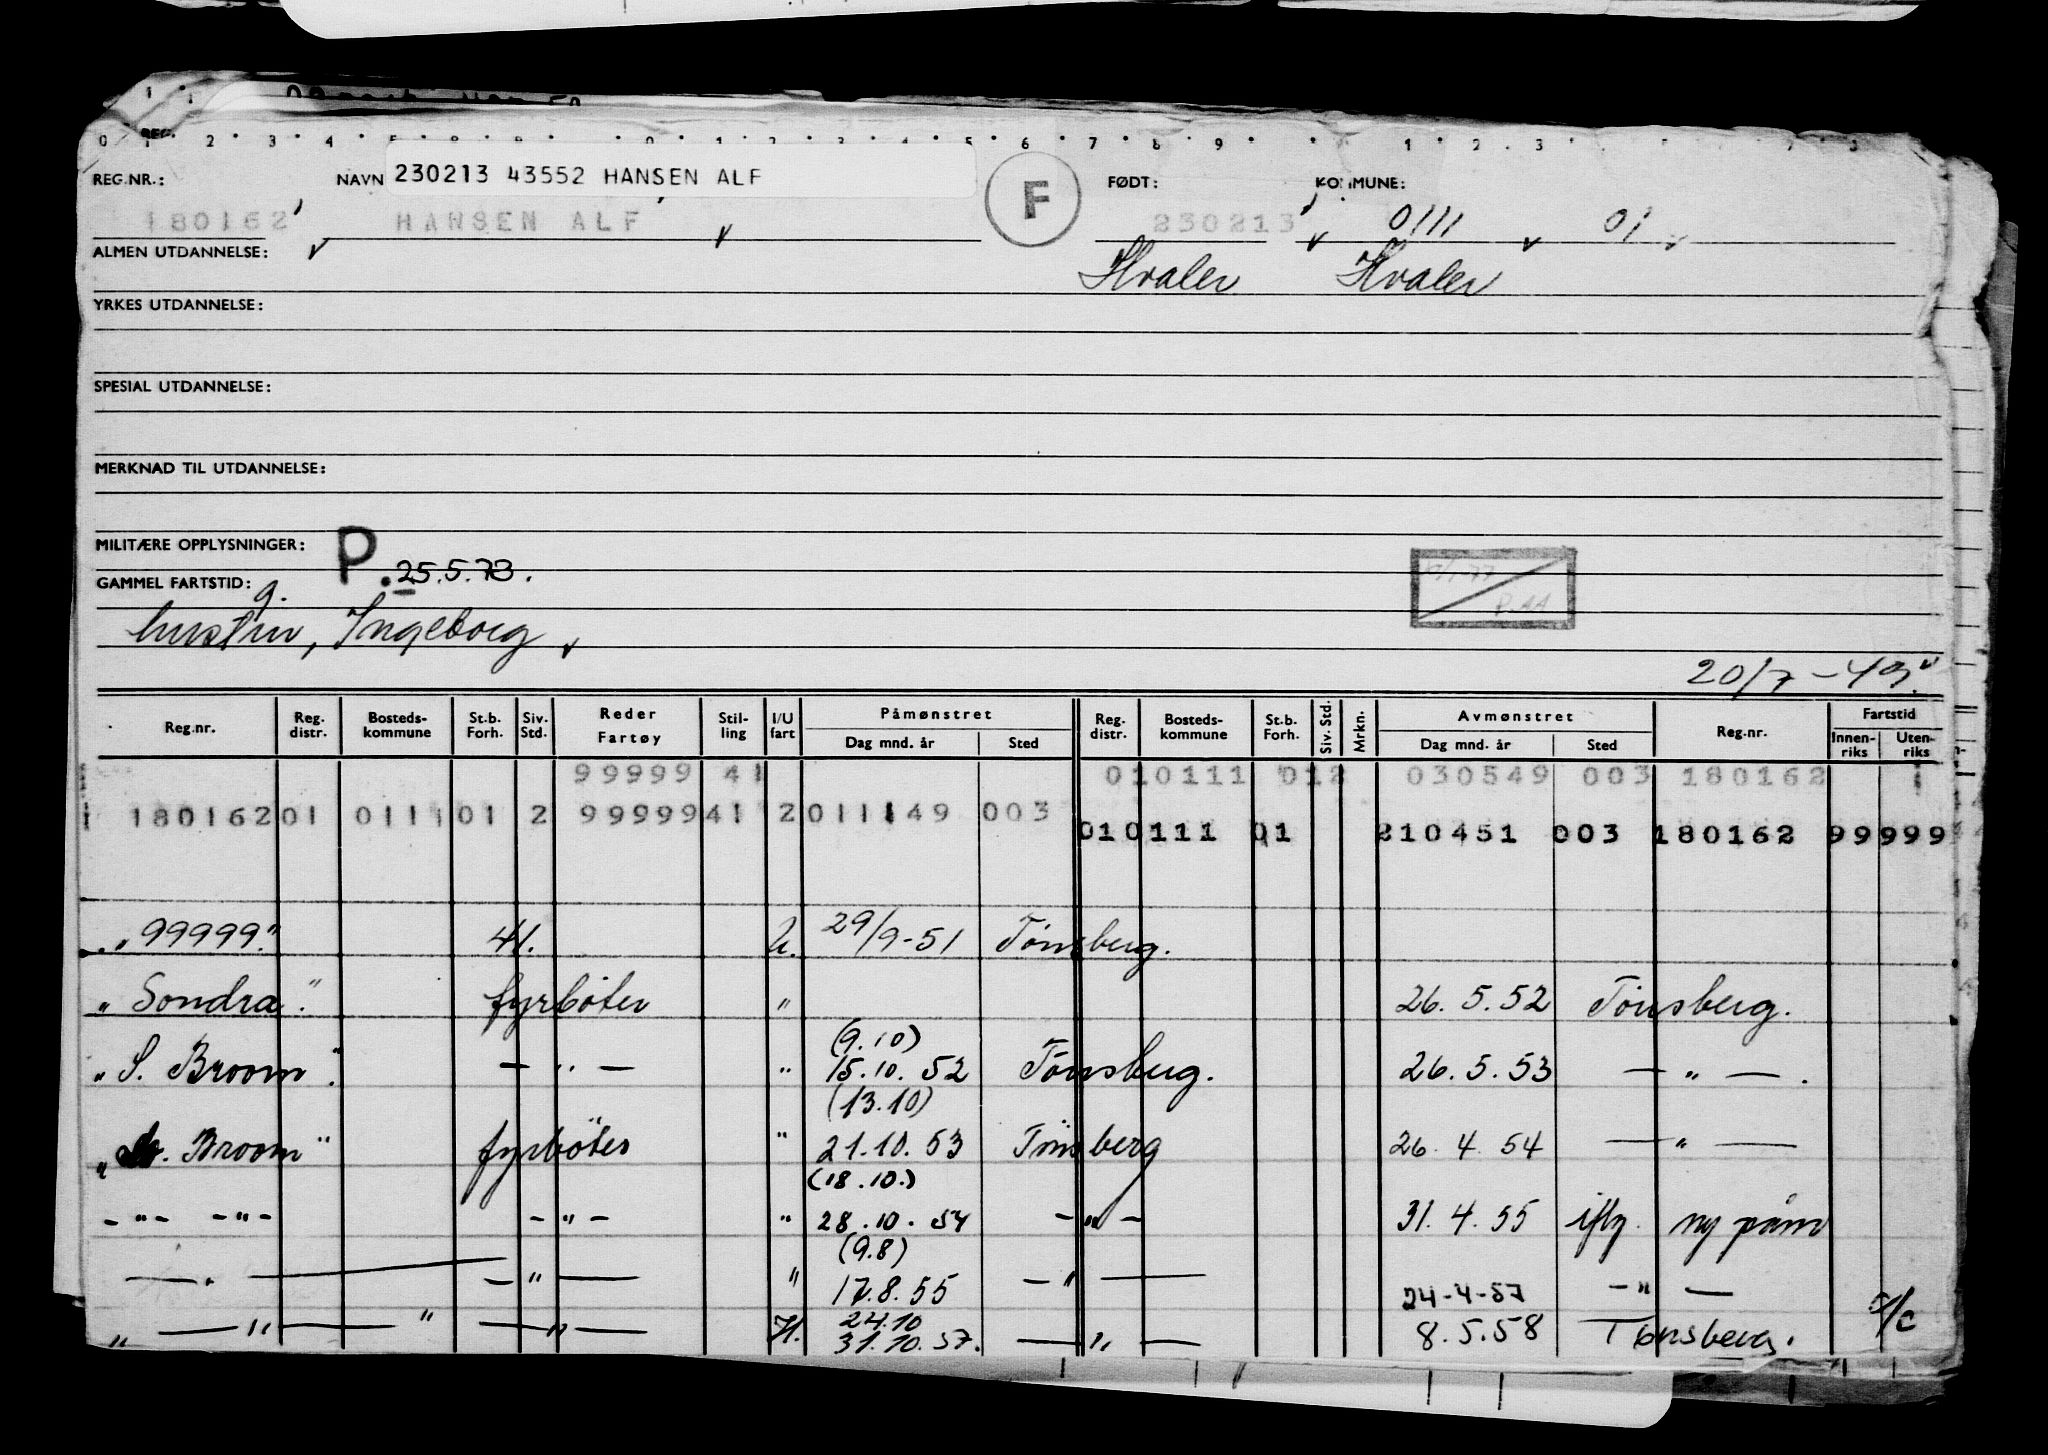 REG.NR.: NAVN 230213 43552 HANSEN ALF F FØDT: KOMMUNE:
180162 HANSEN ALF 230213 0111 01
ALMEN UTDANNELSE: Hvaler Hvaler
YRKES UTDANNELSE:
SPESIAL UTDANNELSE:
MERKNAD TIL UTDANNELSE:
MILITÆRE OPPLYSNINGER: P. 25.5.73.
GAMMEL FARTSTID: g.
hustru, Ingeborg
20/7-49.
Reg.nr. Reg. distr. Bosteds-kommune St.b. Forh. Siv. Std. Reder Fartøy Stil-ling I/U fart Påmønstret Dag mnd. år Sted Reg. distr. Bosteds-kommune St.b. Forh. Siv. Std. Mrkn. Avmønstret Dag mnd. år Sted Reg.nr. Fartstid Innen-riks Uten-riks
99999 41 010111 012 030549 003 180162
180162 01 0111 01 2 99999 41 2 011149 003
010111 01 210451 003 180162 99999
"99999." 41. U. 29/9-51 Tønsberg.
"Sondra". fyrbøter " 26.5.52 Tønsberg.
(9.10)
"S. Broom". — " — " 15.10.52 Tønsberg. 26.5.53 — " — .
(13.10)
Broom" fyrbøter " 21.10.53 Tønsberg 26.4.54 — " —
(18.10.)
-"- -"- -"- " 28.10.54 -"- 31.4.55 iflg. ny påm
(9.8)
— " — " 17.8.55 — " — 24-4-57 — " —
24.10
" — " — " — " — H. 31.10.57. — " — 8.5.58 Tønsberg.